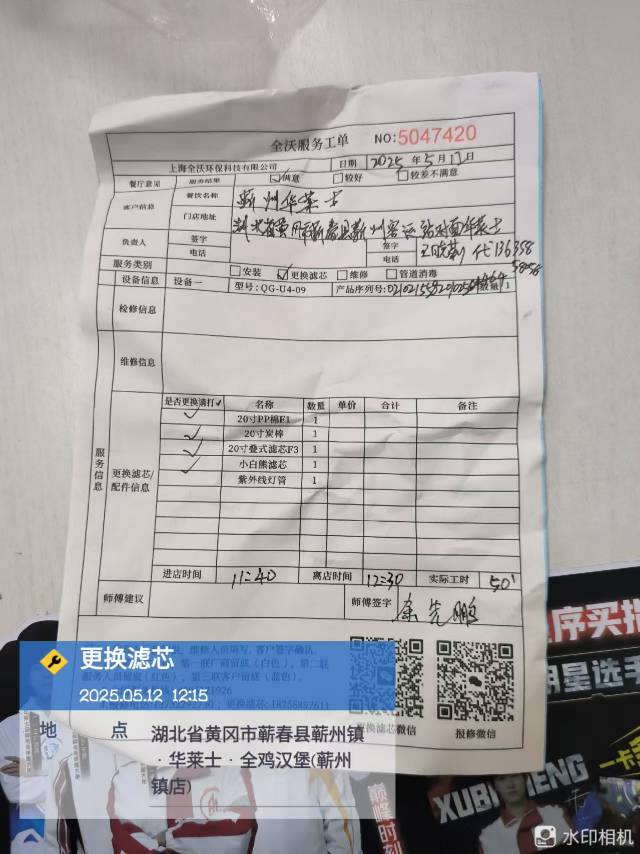 全沃服务工单 NO:5047420
上海全沃环保科技有限公司 日期 2025年5月12日
餐厅意见 服务结果 满意 较好 较差不满意
客户信息 餐饮名称 蕲州华莱士
门店地址 湖北省黄冈市蕲春县蕲州客运站对面华莱士
负责人 签字 电话 签字 电话
服务类别 安装 ✓更换滤芯 维修 管道消毒
设备信息 设备一 型号:QG-U4-09 产品序列号: 数量 1
检修信息
维修信息
服务信息
更换滤芯/配件信息
是否更换满打✓ 名称 数量 单价 合计 备注
✓ 20寸PP棉F1 1
✓ 20寸炭棒 1
✓ 20寸叠式滤芯F3 1
✓ 小白熊滤芯 1
紫外线灯管 1
进店时间 11:40 离店时间 12:30 实际工时 50'
师傅建议 师傅签字 余先鹏
维修人员填写,客户签字确认,
第一联厂商留底(白色),第二联
服务人员留底(红色),第三联客户留底(蓝色)。
更换滤芯微信 报修微信
更换滤芯
2025.05.12 12:15
地 点 湖北省黄冈市蕲春县蕲州镇
·华莱士·全鸡汉堡(蕲州
镇店)
序买指
明星选手
巅峰时刻
水印相机